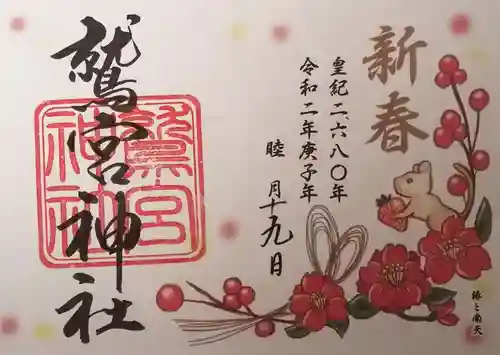 新春
皇紀二、六八〇年
令和二年庚子年
睦月十九日
鷲宮神社
鷲宮
神社
椿と南天